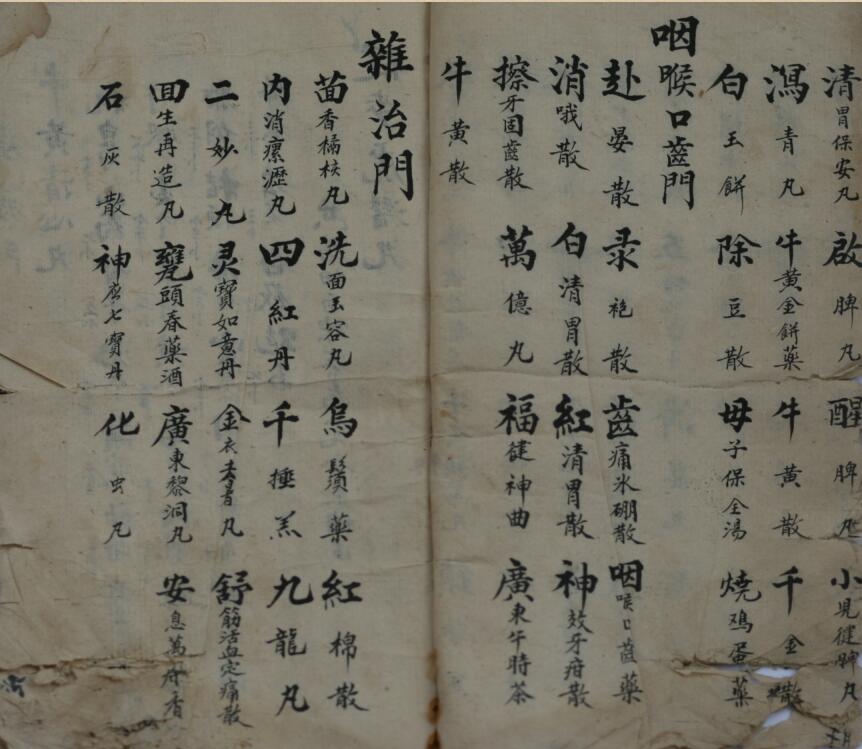 清胃保安丸 啟脾丸 醒脾丸 小児健脾丸
瀉青丸 牛黃金餅藥 牛黃散 千金散
白玉餅 除豆散 毋子保全湯 燒鴉蛋藥
咽喉口齒門
赴晏散 录袍散 齒痛氷硼散 咽喉口齒藥
消哦散 白清胃散 紅清胃散 神效牙疳散
擦牙固齒散 萬億丸 福健神曲 廣東午時茶
牛黃散
雜治門
茴香橘核丸 洗面玉容丸 烏鬚藥 紅棉散
内消瘰瀝丸 四紅丹 千捶羔 九龍丸
二妙丸 灵寶如意丹 金衣丸 舒筋活血定痛散
回生再造丸 甕頭春藥酒 廣東黎洞丸 安息萬香
石灰散 神七寶丹 化虫丸